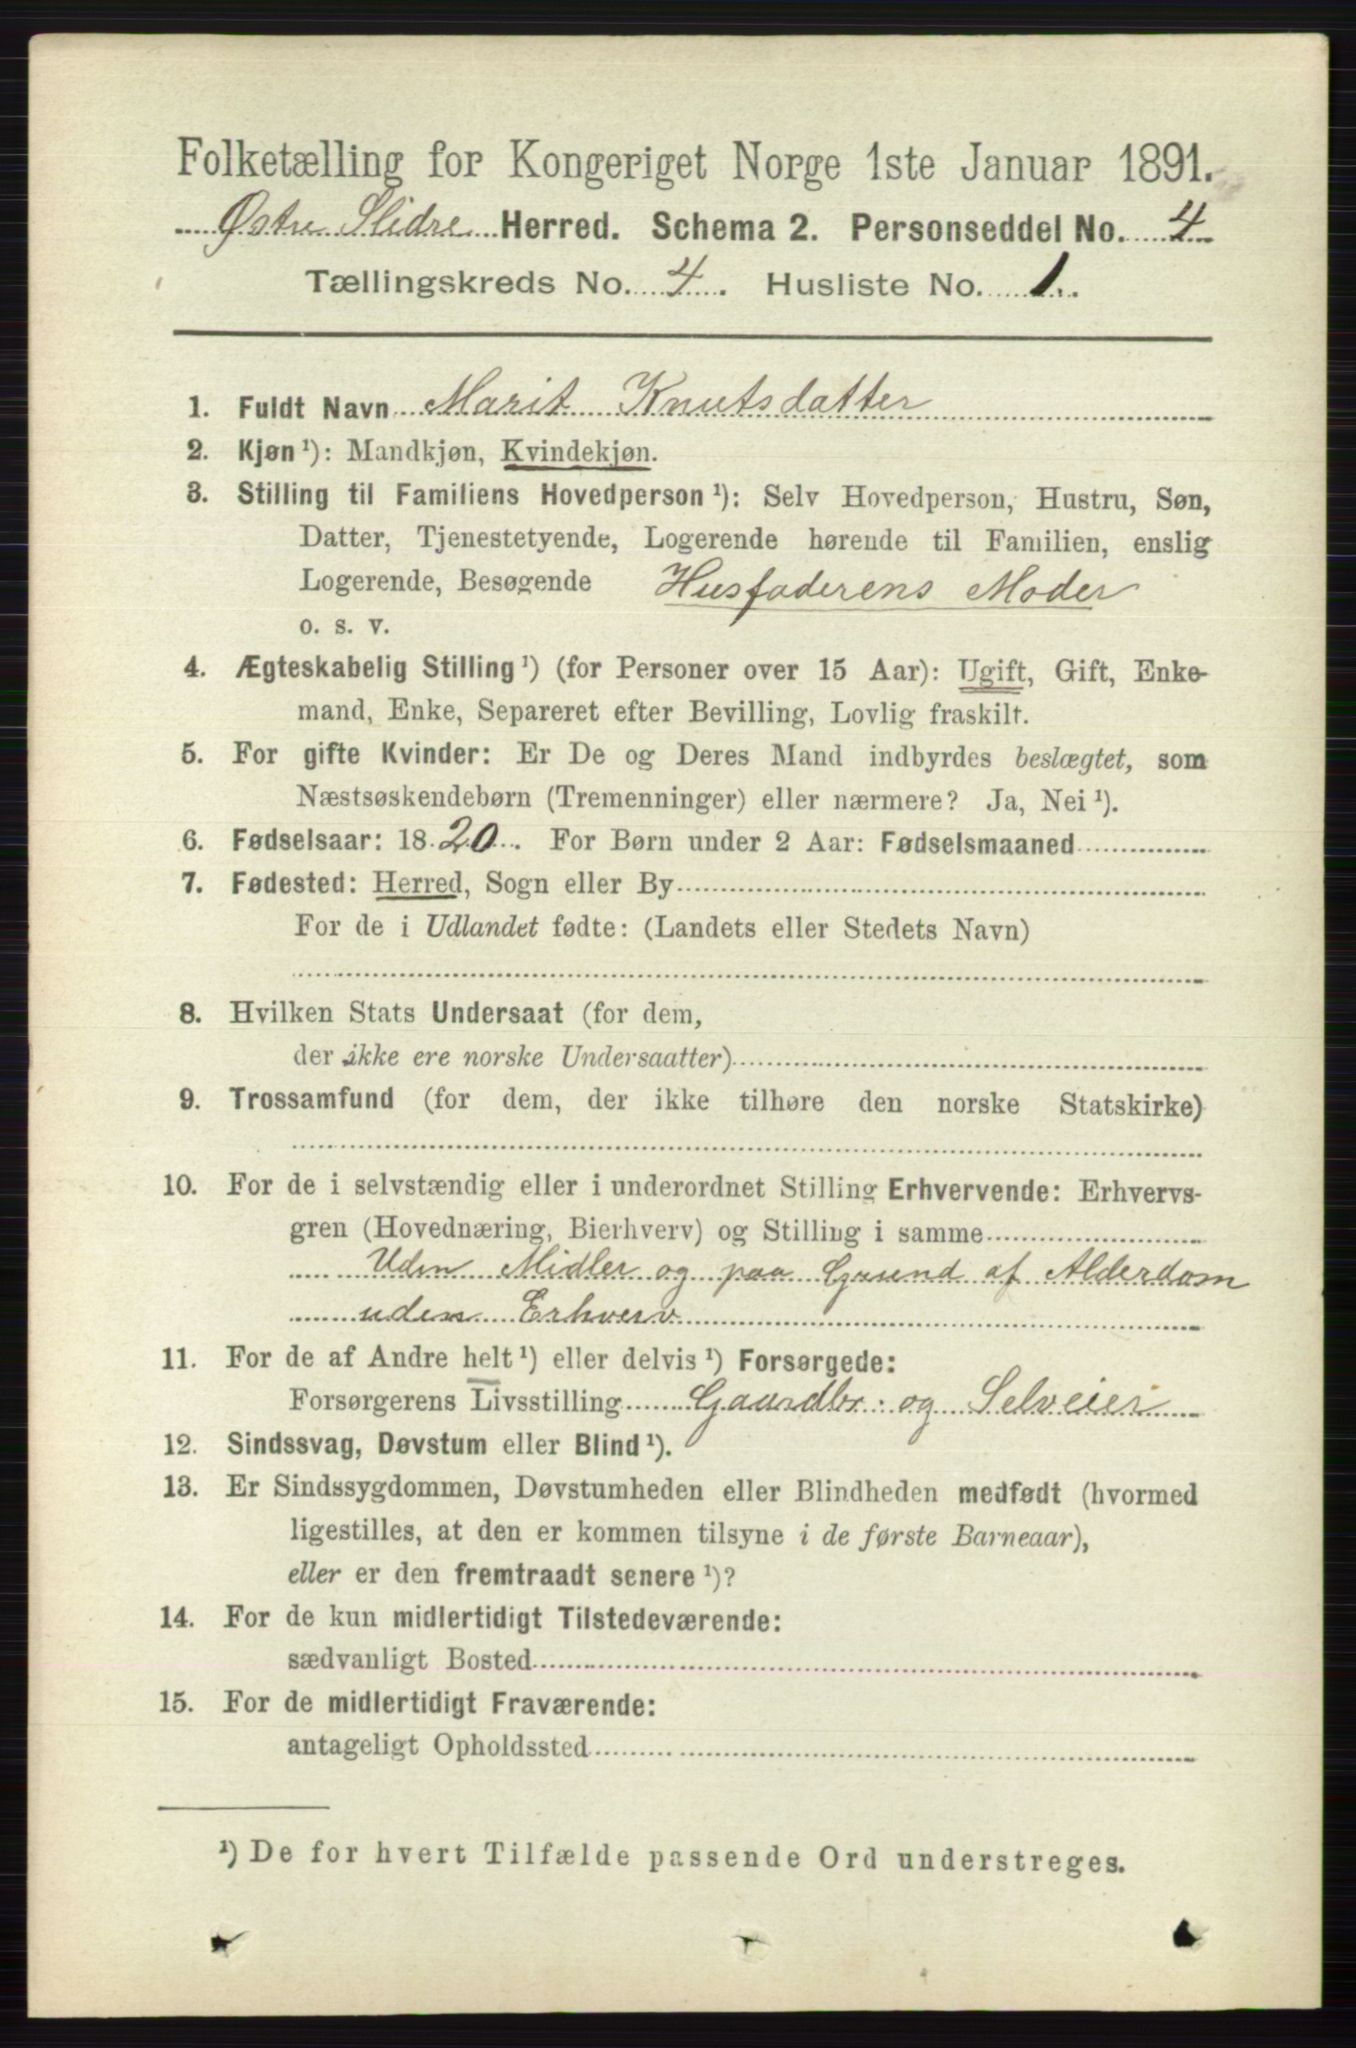 Folketælling for Kongeriget Norge 1ste Januar 1891.
Østre Slidre Herred. Schema 2. Personseddel No. 4
Tællingskreds No. 4. Husliste No. 1.
1. Fuldt Navn Marit Knutsdatter
2. Kjøn ¹): Mandkjøn, Kvindekjøn.
3. Stilling til Familiens Hovedperson ¹): Selv Hovedperson, Hustru, Søn,
Datter, Tjenestetyende, Logerende hørende til Familien, enslig
Logerende, Besøgende Husfaderens Moder
o. s. v.
4. Ægteskabelig Stilling ¹) (for Personer over 15 Aar): Ugift, Gift, Enke-
mand, Enke, Separeret efter Bevilling, Lovlig fraskilt.
5. For gifte Kvinder: Er De og Deres Mand indbyrdes beslægtet, som
Næstsøskendebørn (Tremenninger) eller nærmere? Ja, Nei ¹).
6. Fødselsaar: 1820. For Børn under 2 Aar: Fødselsmaaned
7. Fødested: Herred, Sogn eller By
For de i Udlandet fødte: (Landets eller Stedets Navn)
8. Hvilken Stats Undersaat (for dem,
der ikke ere norske Undersaatter)
9. Trossamfund (for dem, der ikke tilhøre den norske Statskirke)
10. For de i selvstændig eller i underordnet Stilling Erhvervende: Erhvervs-
gren (Hovednæring, Bierhverv) og Stilling i samme
Uden Midler og paa Grund af Alderdom
uden Erhverv
11. For de af Andre helt ¹) eller delvis ¹) Forsørgede:
Forsørgerens Livsstilling Gaardbr. og Selveier
12. Sindssvag, Døvstum eller Blind ¹).
13. Er Sindssygdommen, Døvstumheden eller Blindheden medfødt (hvormed
ligestilles, at den er kommen tilsyne i de første Barneaar),
eller er den fremtraadt senere ¹)?
14. For de kun midlertidigt Tilstedeværende:
sædvanligt Bosted
15. For de midlertidigt Fraværende:
antageligt Opholdssted
¹) De for hvert Tilfælde passende Ord understreges.